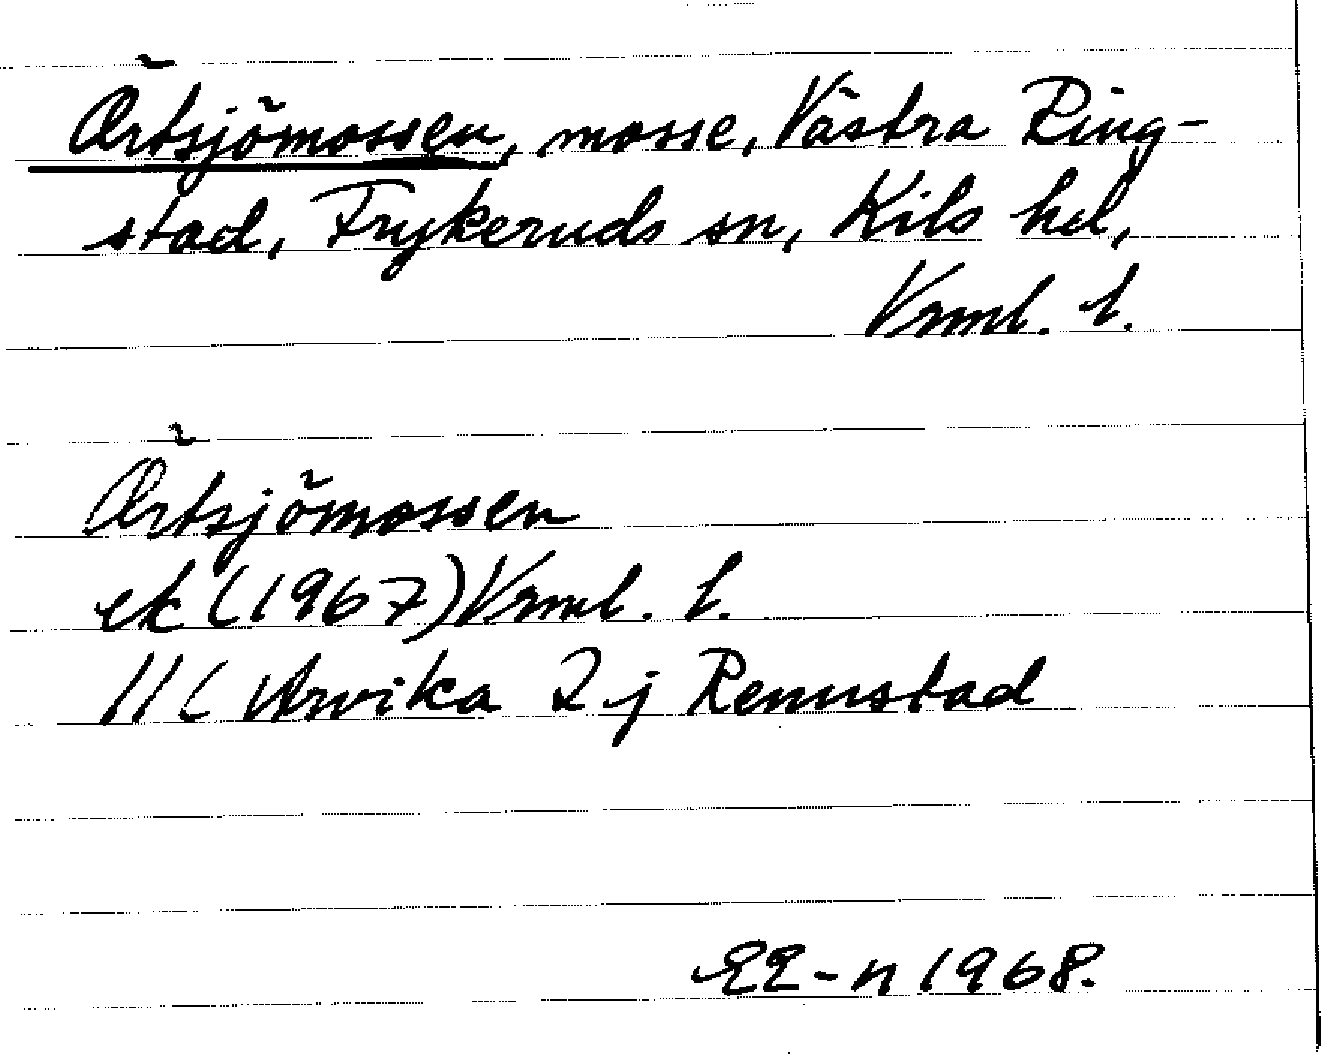 Ärtsjömossen, mosse, Västra Ring-
stad, Frykeruds sn, Kils hd,
Vrml. l.
Ärtsjömossen
ek (1967) Vrml. l.
11C Arvika 2 j Rennstad
EE-n 1968.